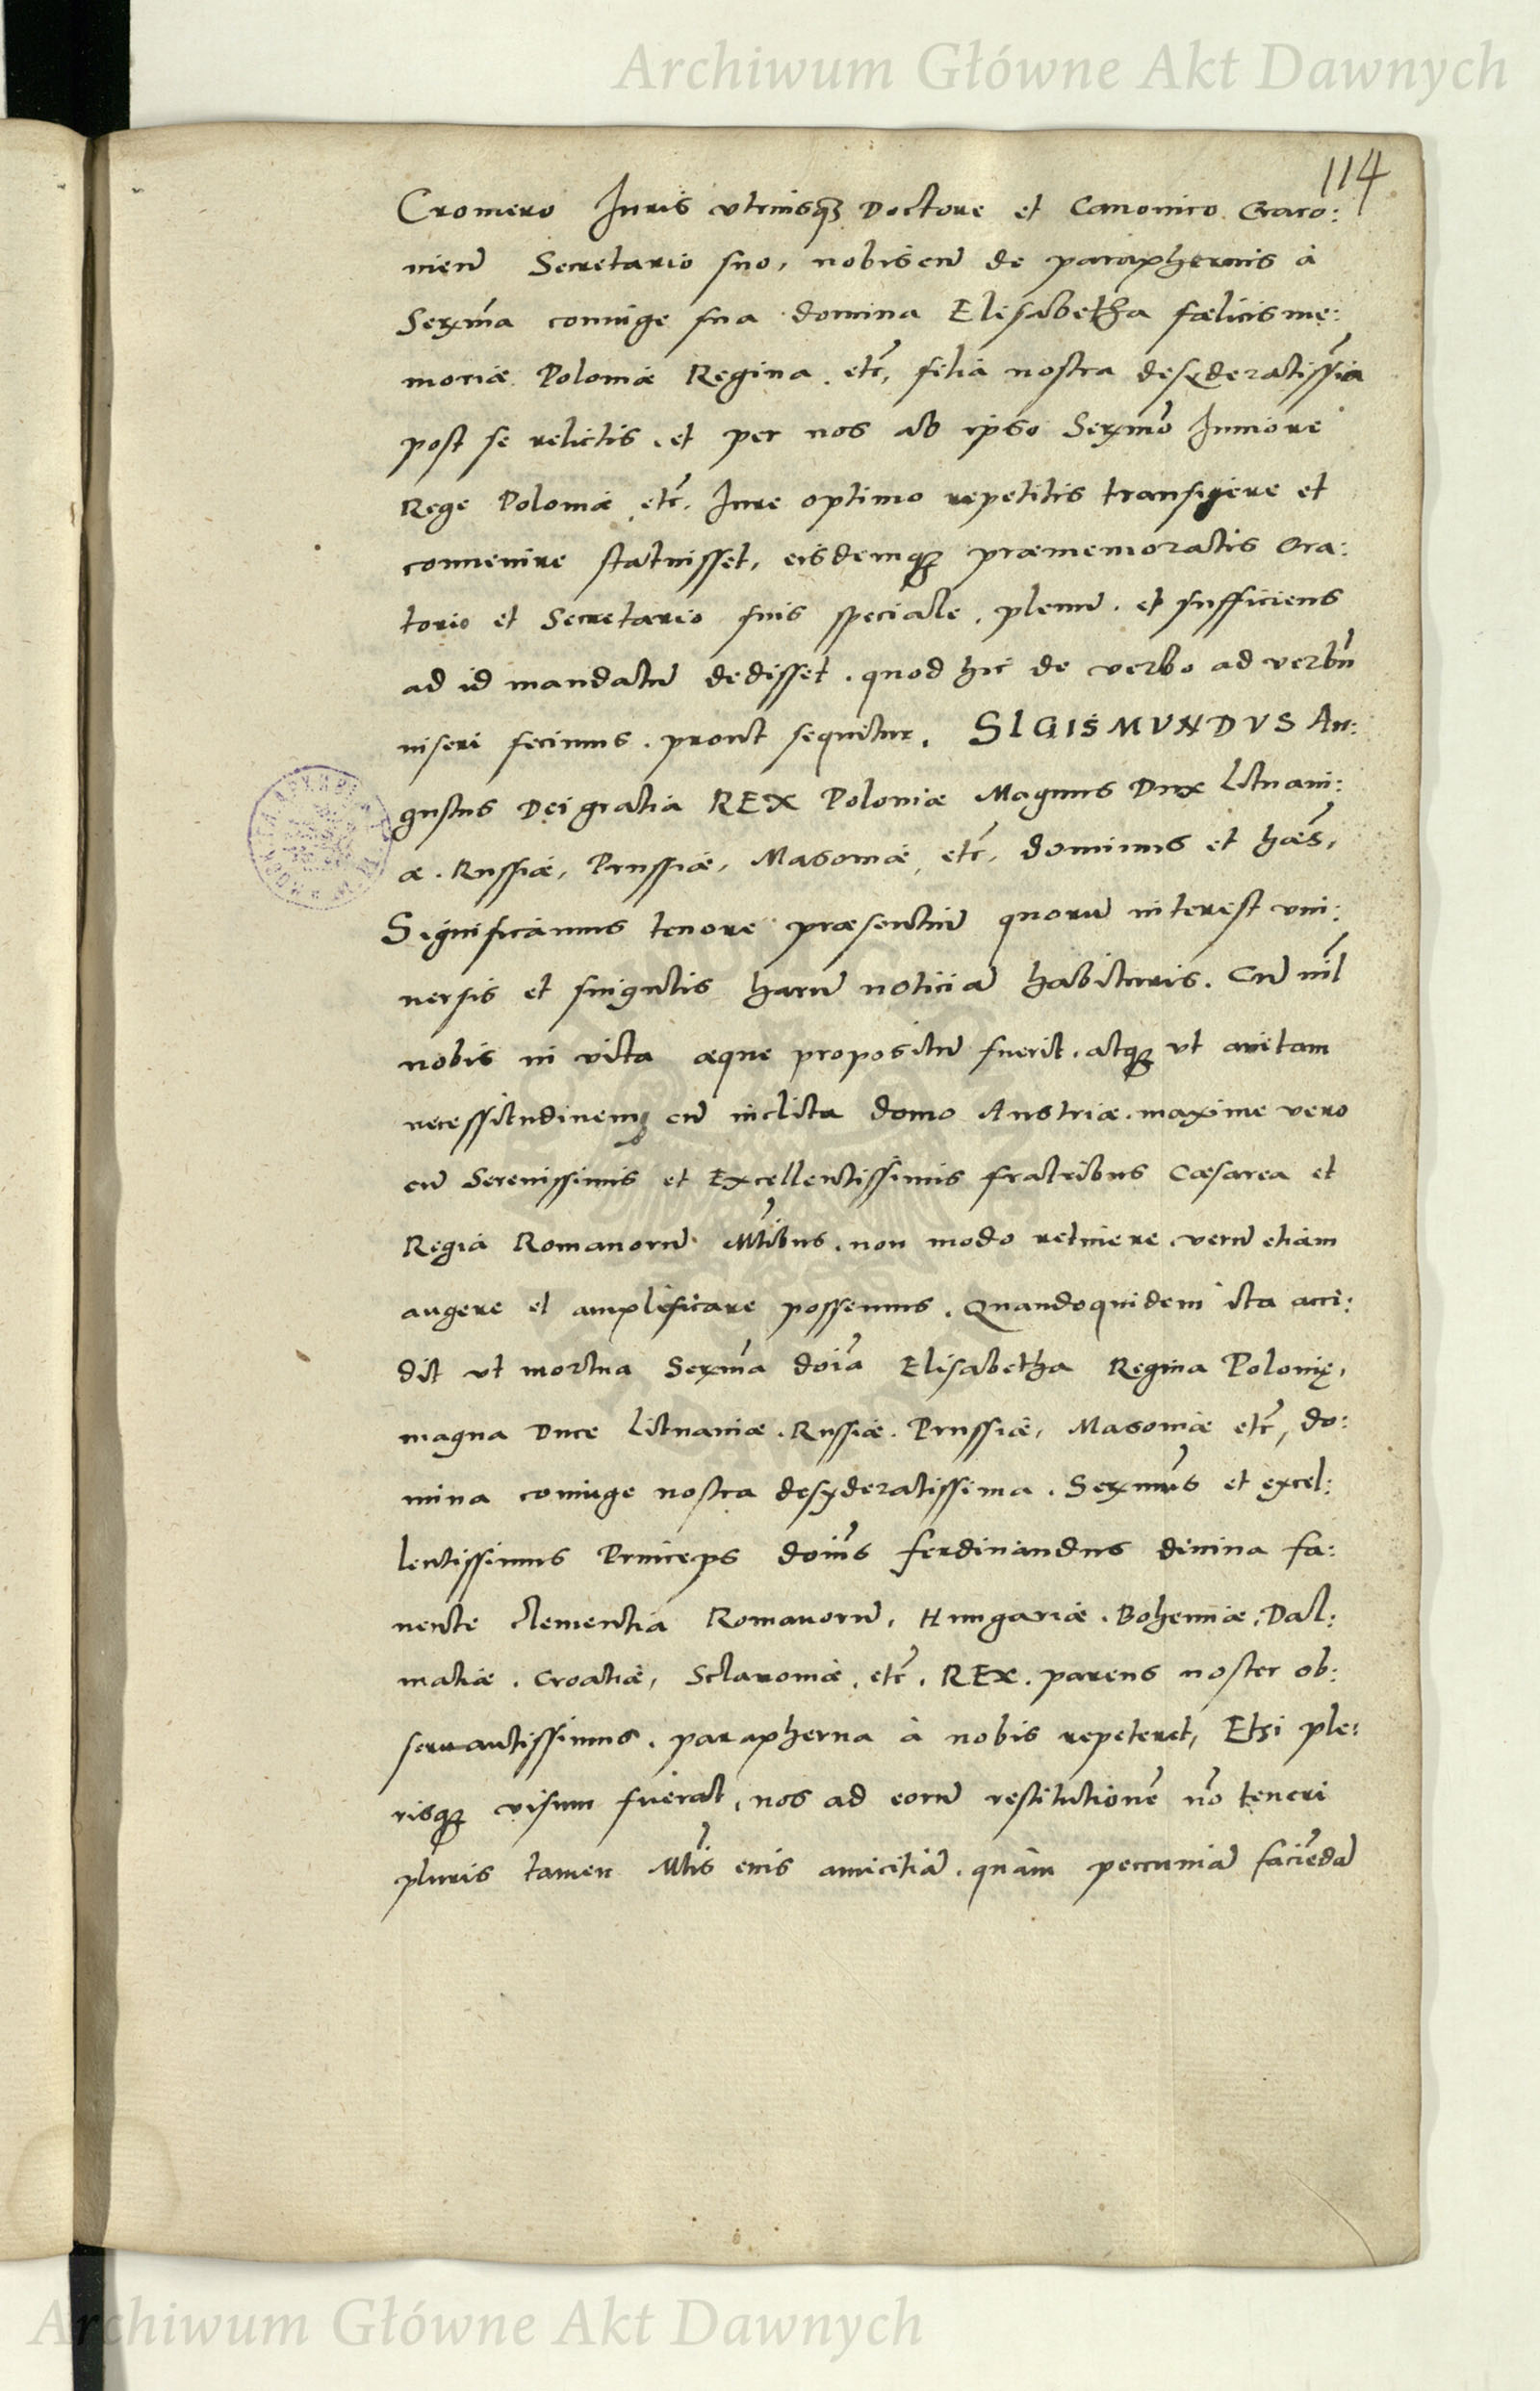 Archiwum Główne Akt Dawnych
114
Cromero Iuris vtriusq₃ Doctore et Canonico Craco:
uien̄ Secretario suo, nobiscū de paraphernis à
Serm̄a coniuge sua domina Elisabetha fœlicis me:
moriæ Poloniæ Regina. etc̄, filia nostra desyderatissīa
post se relictis, et per nos ab ipso Serm̄o Iuniore
Rege Poloniæ, etc̄. Iure optimo repetitis transigere et
conuenire statuisset, eisdemq₃ præmemoratis Ora:
torio et Secretario suis speciale, plenū. et sufficiens
ad id mandatū dedisset. quod hic de verbo ad verbū
inseri fecimus. prout sequitur. SIGISMVNDVS Au:
gustus Dei gratia REX Poloniæ Magnus Dux Lituani:
æ. Russiæ, Prussiæ, Masoviæ, etc̄, dominus et hæs̄,
Significamus tenore præsentiū quorū interest vni:
uersis et singulis harū noticiā habituris. Cū nīl
nobis in vita æque propositū fuerit, atq₃ vt auitam
necessitudinem cū inclita domo Austriæ. maxime vero
cū Serenissimis et Excellentissimis fratribus Cæsarea et
Regia Romanorū Mtībus, non modo retinere, verū etiam
augere et amplificare possemus. Quandoquidem ita acci:
dit vt mortua Serm̄a dōia Elisabetha Regina Polonię,
magna Duce Lituaniæ. Russiæ. Prussiæ, Masoviæ etc̄, do:
mina coniuge nostra desyderatissima. Sermūs et excel:
lentissimus Princeps doīus Ferdinandus diuina fa:
uente clementia Romanorū, Hungariæ. Bohemiæ, Dal:
matiæ. Croatiæ, Sclavoniæ, etc̄. REX. parens noster ob:
seruantissimus. parapherna à nobis repeteret, Etsi ple:
risq₃ visum fuerat, nos ad eorū restitutionē nō teneri
pluris tamen Mtīs eius amicitiā, quàm peccuniā faciēdā
Archiwum Główne Akt Dawnych